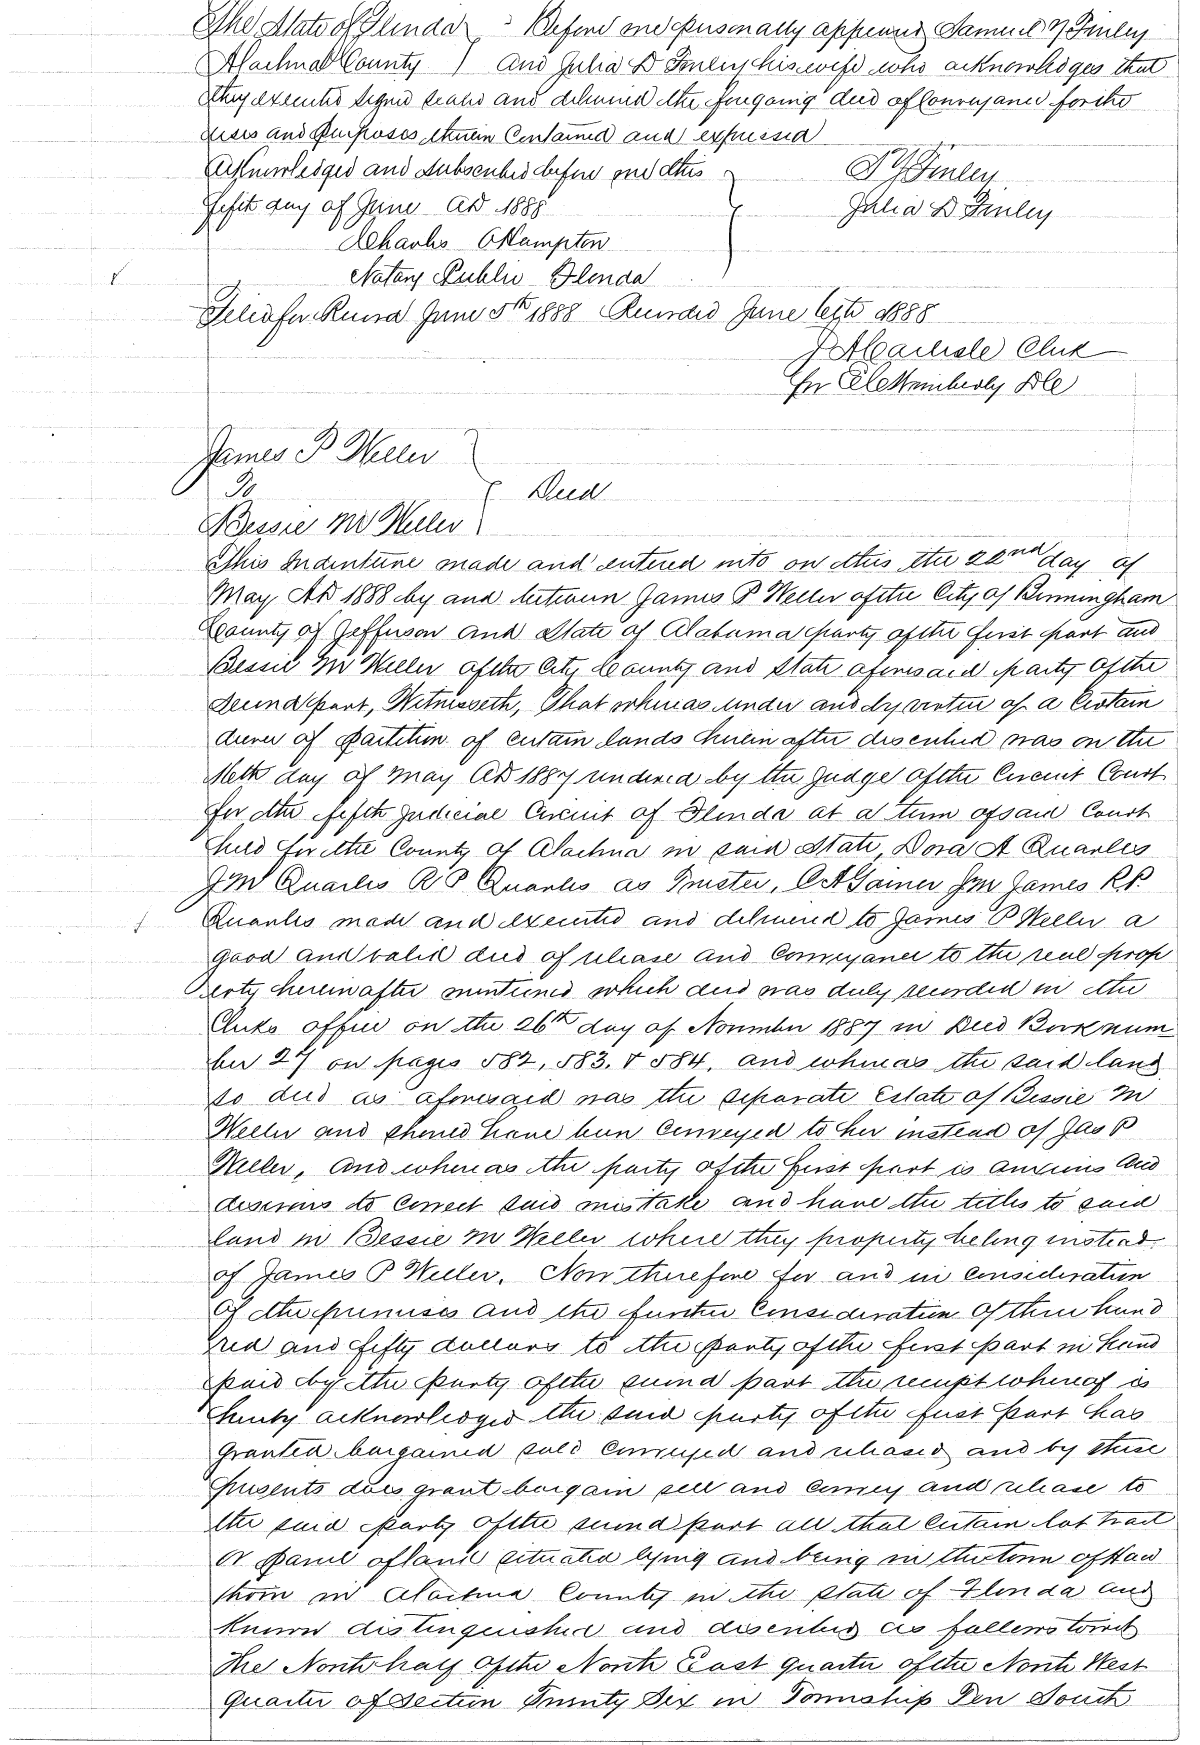 The State of Florida } Before me personally appeared Samuel Y Finley
Alachua County } And Julia D Finley his wife who acknowledges that
they executed signed sealed and delivered the foregoing deed of Conveyance for the
uses and purposes therein Contained and expressed
Acknowledged and subscribed before me this } S Y Finley
fifth day of June AD 1888 } Julia D Finley
Charles O Hampton
Notary Public Florida
Filed for Record June 5th 1888 Recorded June 6th 1888
J A Carlisle Clerk
for Wimberly DC
James P Weller }
To } Deed
Bessie M Weller }
This Indenture made and entered into on this the 22nd day of
May AD 1888 by and between James P Weller of the City of Birmingham
County of Jefferson and State of Alabama party of the first part and
Bessie M Weller of the City County and State aforesaid party of the
second part, Witnesseth, That whereas under and by virtue of a Certain
decree of partition of certain lands herein after described was on the
day of May AD 1887 rendered by the Judge of the Circuit Court
for the fifth Judicial Circuit of Florida at a term of said Court
held for the County of Alachua in said State, Dora A Quarles
J M Quarles R P Quarles as Trustee, Gainer James R P.
Quarles made and executed and delivered to James P Weller a
good and valid deed of release and Conveyance to the real prop
erty hereinafter mentioned which deed was duly recorded in the
Clerks office on the 26th day of November 1887 in Deed Book num
ber 27 on pages 582, 583, & 584, and whereas the said land
so deed as aforesaid was the separate Estate of Bessie M
Weller and should have been Conveyed to her instead of Jas P
Weller, And whereas the party of the first part is anxious and
desirous to Correct said mistake and have the titles to said
land in Bessie M Weller where they property belong instead
of James P Weller. Now therefore for and in Consideration
of the premises and the further Consideration of three hund
red and fifty dollars to the party of the first part in hand
paid by the party of the second part the receipt whereof is
hereby acknowledged the said party of the first part has
granted bargained sold Conveyed and released and by these
presents does grant bargain sell and Convey and release to
the said party of the second part all that certain lot tract
or parcel of land situated lying and being in the town of Haw
thorn in Alachua County in the State of Florida and
known distinguished and described as follows towit
The North half of the North East quarter of the North West
quarter of Section Twenty Six in Township Ten South